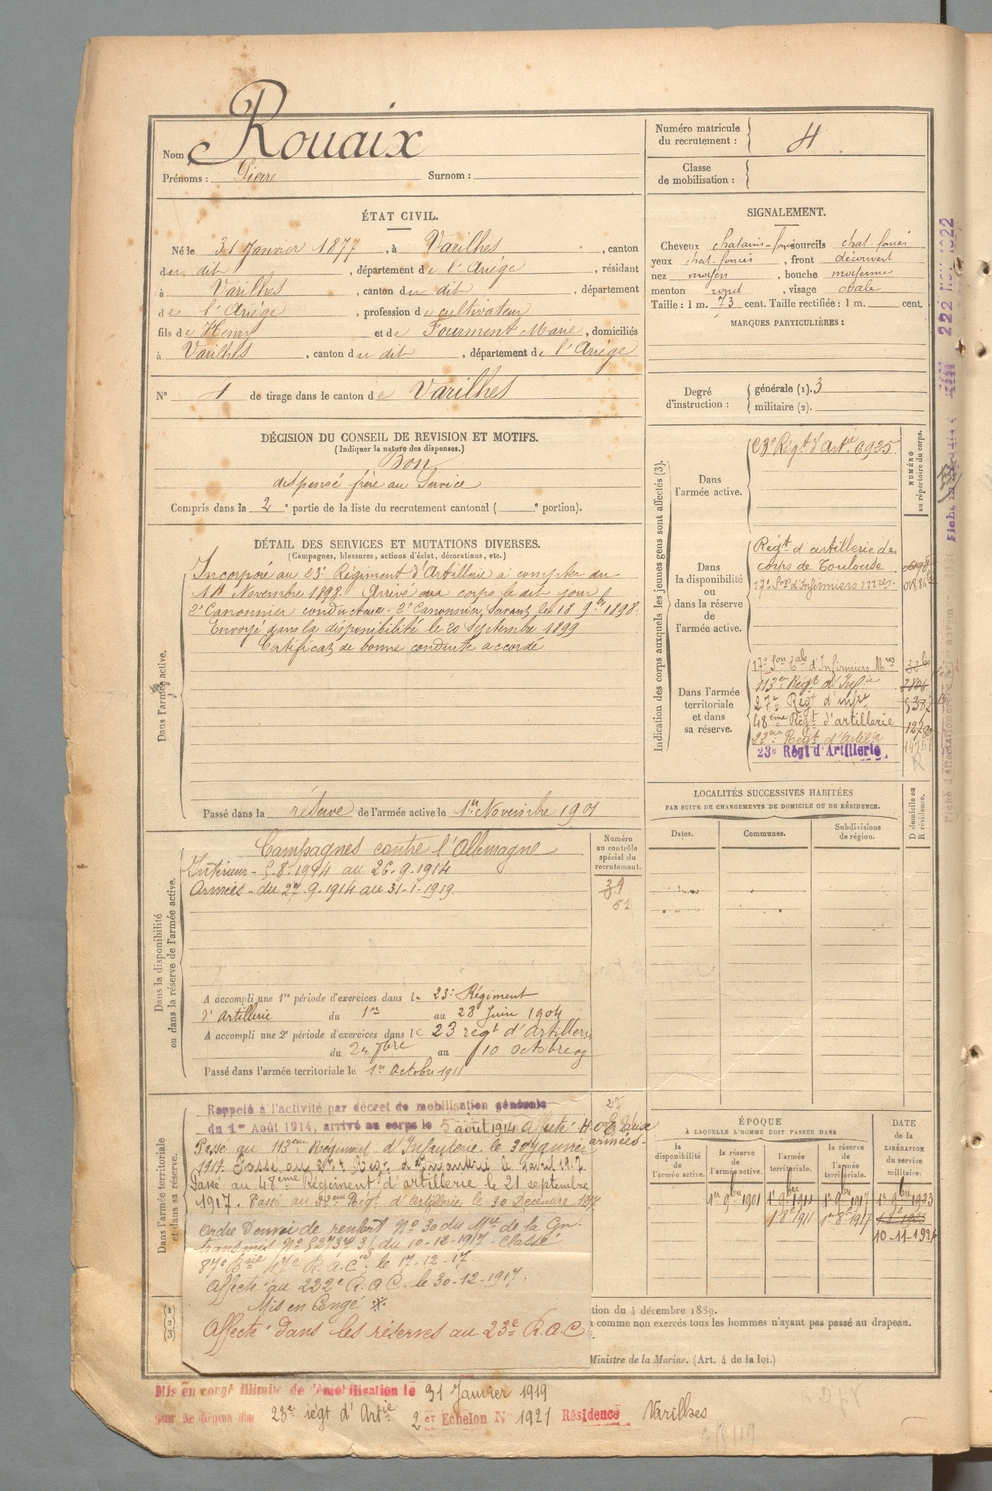 Nom Rouaix
Prénoms : Pierre Surnom :
Numéro matricule du recrutement : 4
Classe de mobilisation :
ÉTAT CIVIL.
Né le 31 Janvier 1877, à Varilhes, canton
du dit, département de l'Ariége, résidant
à Varilhes, canton du dit, département
de l'Ariége, profession de cultivateur
fils de Henry et de Fourment Marie, domiciliés
à Varilhes, canton du dit, département de l'Ariége
N° 1 de tirage dans le canton de Varilhes
SIGNALEMENT.
Cheveux chatains-foncé sourcils chat-foncés
yeux chat-foncés, front découvert
nez moyen, bouche moyenne
menton rond, visage ovale
Taille : 1 m. 73 cent. Taille rectifiée : 1 m. cent.
MARQUES PARTICULIÈRES :
Degré d'instruction : générale (1). 3
militaire (2).
DÉCISION DU CONSEIL DE REVISION ET MOTIFS.
(Indiquer la nature des dispenses.)
Bon
dispensé frère au Service
Compris dans la 2e partie de la liste du recrutement cantonal ( e portion).
DÉTAIL DES SERVICES ET MUTATIONS DIVERSES.
(Campagnes, blessures, actions d'éclat, décorations, etc.)
Dans l'armée active.
Incorporé au 23e Régiment d'Artillerie à compter du
Novembre 1898. Arrivé au corps le dit jour
2e Canonnier conducteur. 2e Canonnier Servant le 18 9bre 1898.
Envoyé dans la disponibilité le 20 Septembre 1899
Certificat de bonne conduite accordé
Passé dans la réserve de l'armée active le 1er Novembre 1901
Indication des corps auxquels les jeunes gens sont affectés (3).
NUMÉRO au répertoire du corps.
Dans l'armée active.
23e Régt d'Artie 6925
Dans la disponibilité ou dans la réserve de l'armée active.
Régt d'artillerie des
corps de Toulouse
17e Son d'Infirmiers mres
Dans l'armée territoriale et dans sa réserve.
17e Son Tale d'Infirmiers Mres
113e Régt d'Infie
27e Régt d'infie
48ème Régt d'artillerie
Régt d'artie
23e Régt d'Artillerie.
LOCALITÉS SUCCESSIVES HABITÉES
PAR SUITE DE CHANGEMENTS DE DOMICILE OU DE RÉSIDENCE.
D domicile ou R résidence.
Dates. Communes. Subdivisions de région.
Dans la disponibilité ou dans la réserve de l'armée active.
Numéro au contrôle spécial du recrutement.
Campagnes contre l'Allemagne
Intérieur - 5-8-1914 au 26-9-1914
Armées - du 27-9-1914 au 31-1-1919
A accompli une 1re période d'exercices dans le 23e Régiment
d'Artillerie du 1er au 28 Juin 1904
A accompli une 2e période d'exercices dans le 23 régt d'Artillerie
du 24 7bre au 10 octobre 07
Passé dans l'armée territoriale le 1er Octobre 1911
Dans l'armée territoriale et dans sa réserve.
Rappelé à l'activité par décret de mobilisation générale
du 1er Août 1914, arrivé au corps le 5 août 1914
armées-
Passé au 113ème Régiment d'Infanterie le 30 Janvier
1917. Passé au Rég. d'Infanterie le
Passé au 48ème Régiment d'artillerie le 21 septembre
1917. Passé au Régt d'artillerie le 30 Décembre 1917
Ordre d'envoi de renfort N° 30 du Mtre de la Gre
transmis N° 52737 3/ du 10-12-1917 - Classé
87e Brie R.A.C. le 17-12-17.
Affecté au 222e R.A.C. le 30-12-1917.
Mis en Congé
Affecté dans les réserves au 23e R.A.C
ÉPOQUE
A LAQUELLE L'HOMME DOIT PASSER DANS
la disponibilité de l'armée active.
la réserve de l'armée active.
l'armée territoriale.
la réserve de l'armée territoriale.
DATE de la LIBÉRATION du service militaire.
1er 9bre 1901
1er 8bre 1911
1er 8bre 1917
1er 9bre 1923
tion du 4 décembre 1889.
comme non exercés tous les hommes n'ayant pas passé au drapeau.
Ministre de la Marine. (Art. 4 de la loi.)
Mis en congé illimité de démobilisation le 31 Janvier 1919
par le dépôt du 23e régt d'Artie 2er Echelon N° 1921 Résidence Varilhes